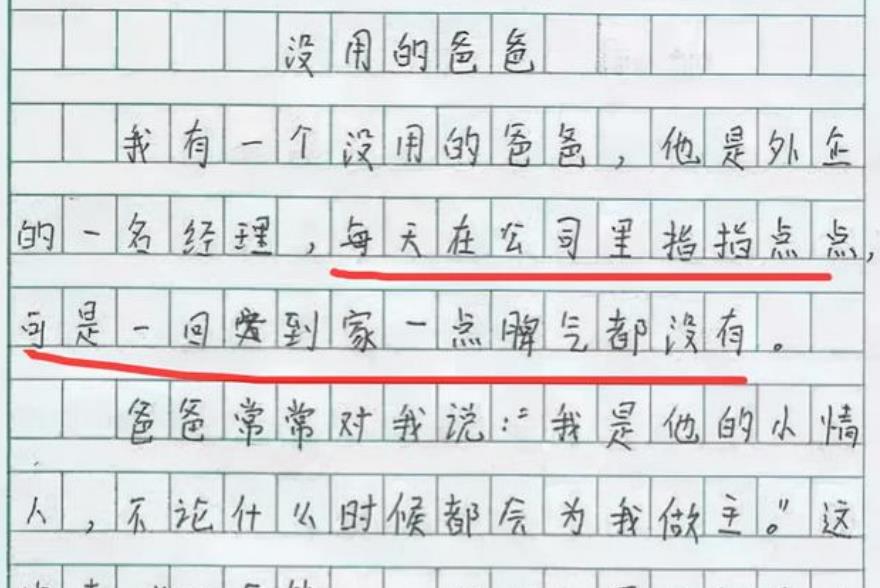 没用的爸爸
我有一个没用的爸爸，他是外企
的一名经理，每天在公司里指指点点，
可是一回到家一点脾气都没有。
爸爸常常对我说：“我是他的小情
人，不论什么时候都会为我做主。”这